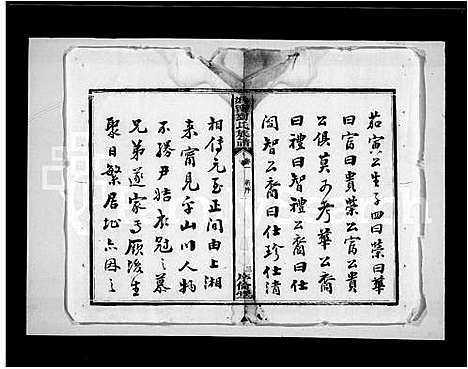 茹寅公生子四曰榮曰華
曰富曰貴榮公富公貴
公俱莫可考華公裔
曰禮曰智禮公裔曰仕
閎智公裔曰仕珍仕清
劉氏族譜
相傳元至正間由上湘
來甯見乎山川人物
不勝尹姞衣冠之慕
兄弟遂家焉厥後生
聚日繁居址亦因之